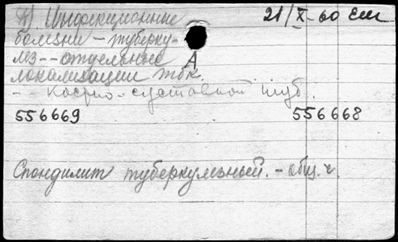 А) Инфекционные 21/X-60 ем
болезни - туберку-
лез -- отдельные А
локализации тбк.
-- костно-суставной туб.
556669 556668
Спондилит туберкулезный. - общ. ч.